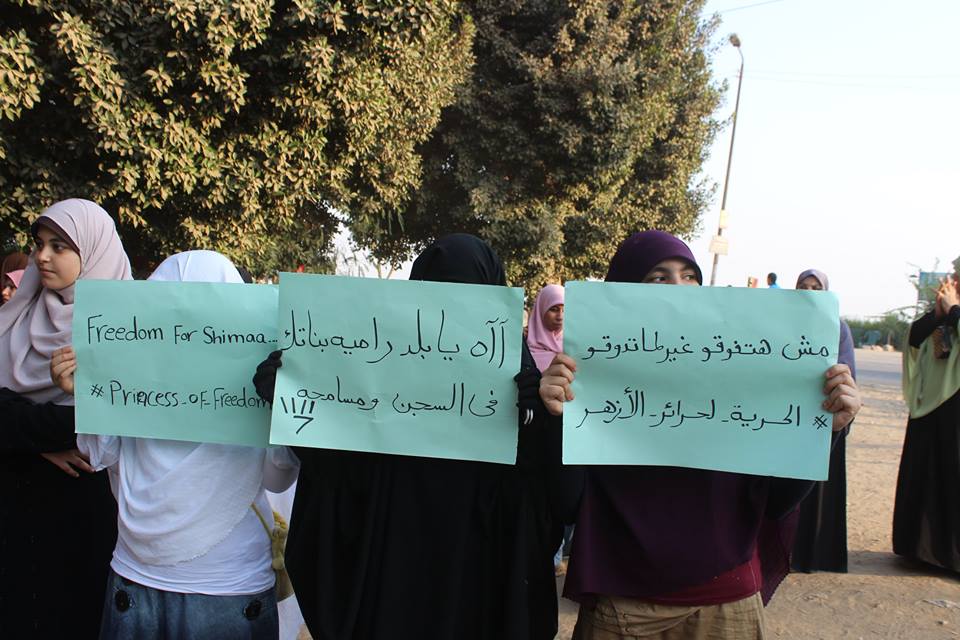 Freedom For Shimaa...
# Princess_of_Freedom
آآآه يا بلد راميه بناتك
فى السجن ومسامحه
مش هتفوقو غير لما تدوقو
# الحرية_لحرائر_الأزهر